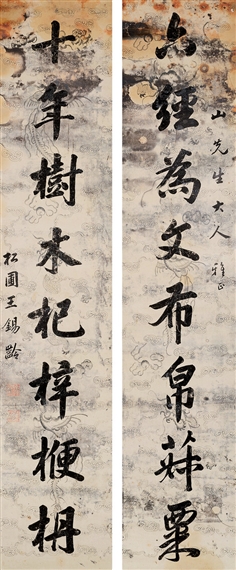 六經為文布帛菽粟
山先生大人雅正
十年樹木杞梓楩枏
松圃王錫齡